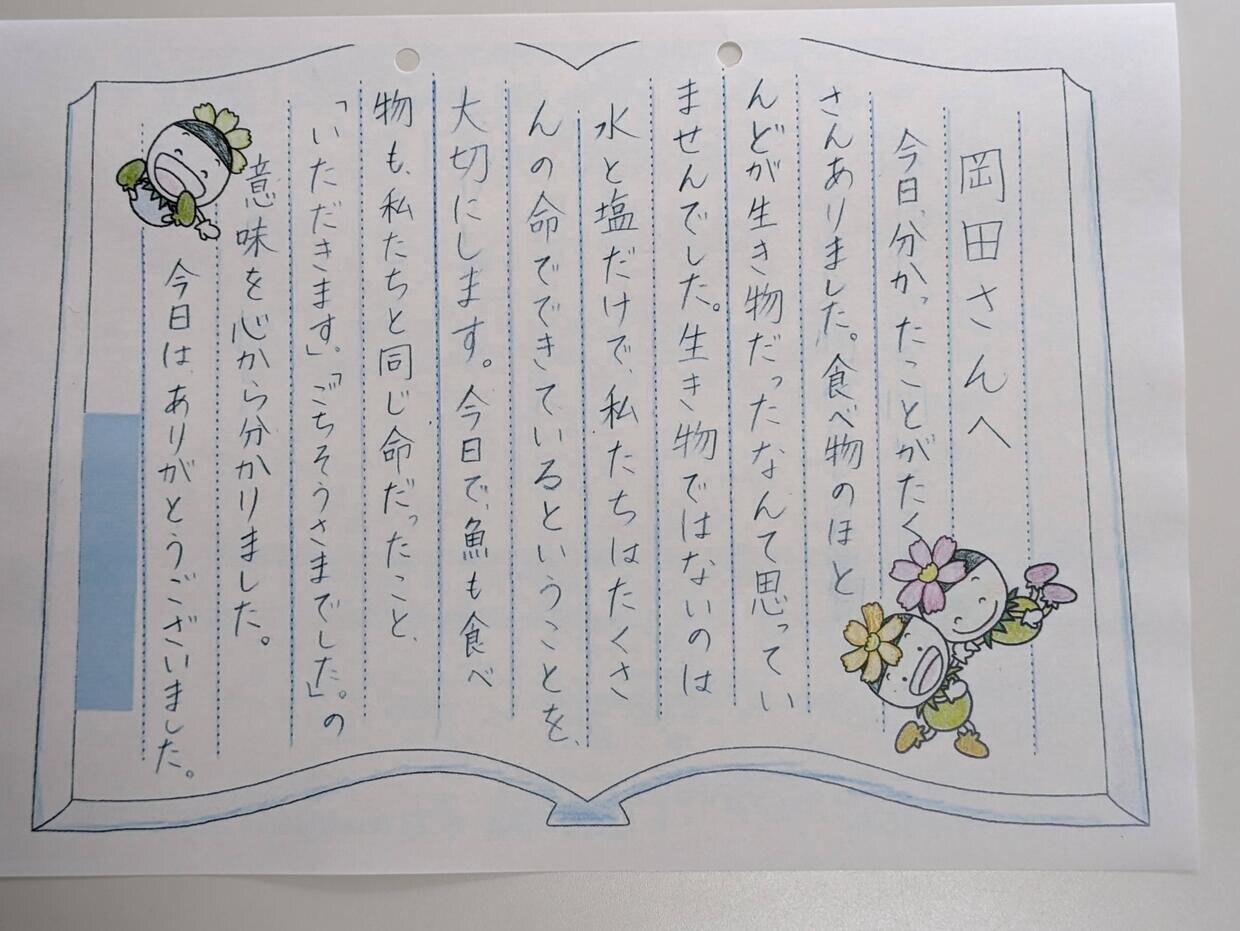 岡田さんへ
今日、分かったことがたく
さんありました。食べ物のほと
んどが生き物だったなんて思ってい
ませんでした。生き物ではないのは
水と塩だけで、私たちはたくさ
んの命でできているということを、
大切にします。今日で、魚も食べ
物も、私たちと同じ命だったこと、
「いただきます」。「ごちそうさまでした」。の
意味を心から分かりました。
今日は、ありがとうございました。